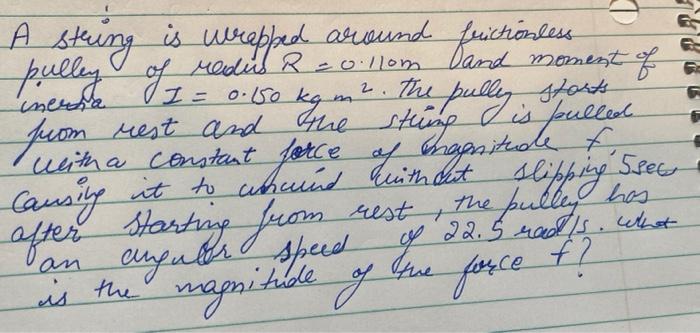 A string is wrapped around frictionless
pulley of radius R = 0.110m and moment of
inertia I = 0.150 kg m². The pully starts
from rest and the string is pulled
with a constant force of magnitude f,
causing it to unwind without slipping 5sec
after starting from rest, the pulley has
an angular speed of 22.5 rad/s. what
is the magnitude of the force f?